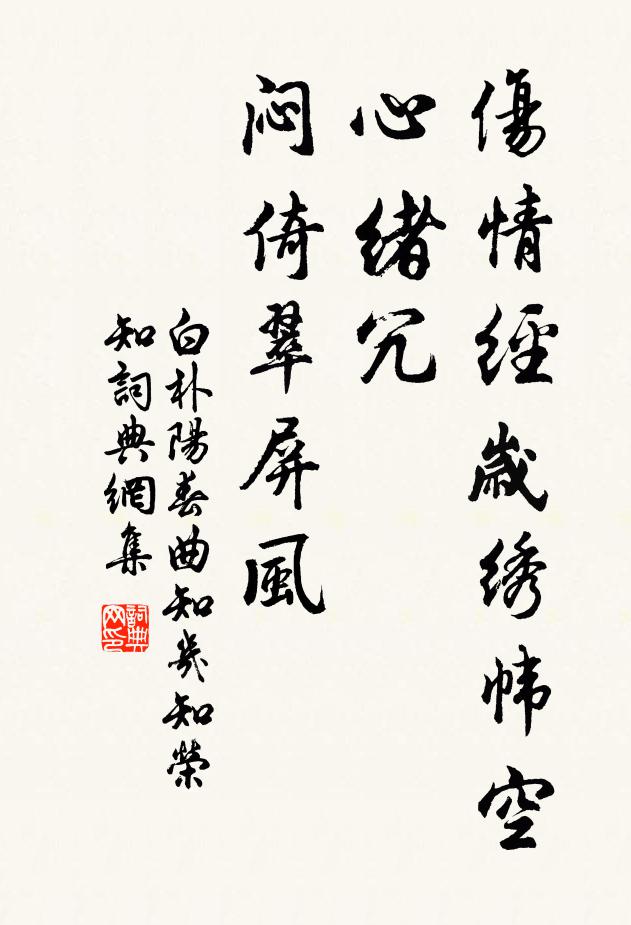 傷情經歲綉幃空
心緒冗
悶倚翠屏風
白朴陽春曲知幾知榮
知詞典網集
詞典
网印